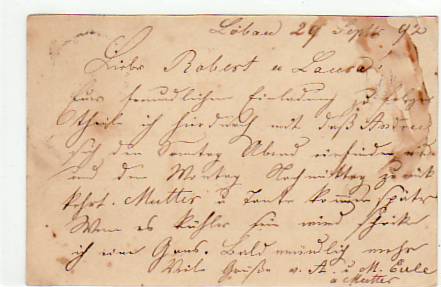 Löbau 29 Sept 92
Liebe Robert u Laura
Eure freundlichen Einladung zu folge
theile ich hierdurch mit daß Andreas
sich den Sonntag Abend einfinden
und den Montag Nachmittag zurück
kehrt. Mutter u Tante kommen später
Wenn es kühler sein wird schicke
ich eine Gans. Bald mündlich mehr
Viele Grüße v. A. u M. Eule
u Mutter